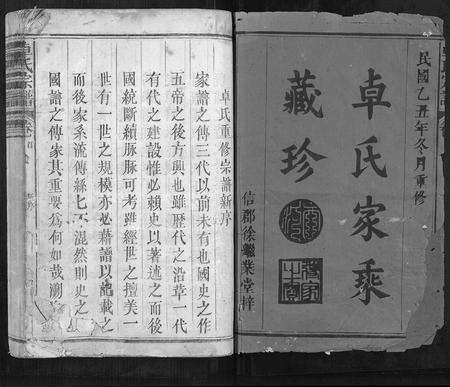 民國乙丑年冬月重修
卓氏家乘
藏珍
信郡徐繼業堂梓
卓氏重修宗譜新序
家譜之傳三代以前未有也國史之作
五帝之後方興也雖歷代之沿革一代
有代之建設惟必賴史以著述之而後
國統斷續脉脉可考雖經世之擅美一
世有一世之規模亦必藉譜以記載之
而後家系流傳絲七不混然則史之
國譜之傳家其重要爲何如哉溯